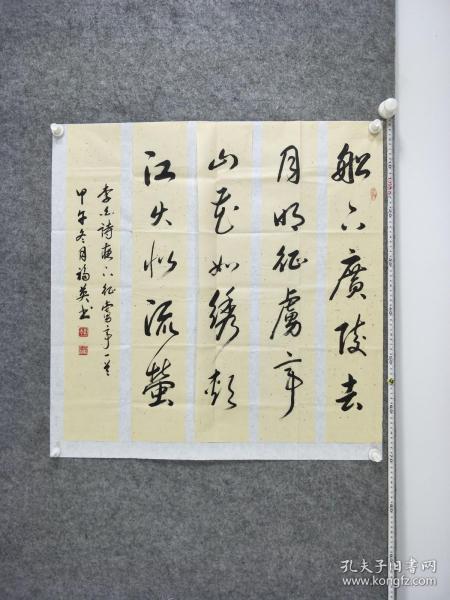 船下廣陵去
月明征虜亭
山花如綉頰
江火似流螢
李白詩夜下征虜亭一首
甲午冬月福英书
孔夫子旧书网
www.kongfz.com